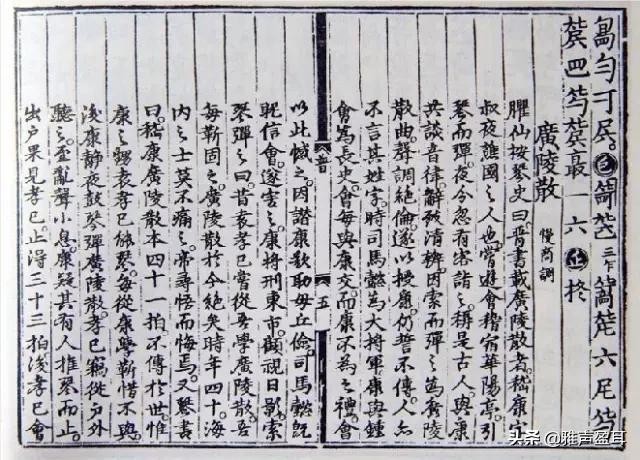 廣陵散 慢商調
臞仙按琴史曰晉書載廣陵散者嵇康字
叔夜譙國之人也嘗遊會稽宿華陽亭引
琴而彈夜今忽有客詣之稱是古人與康
共談音律辭致清辨因索而彈之為廣陵
散曲聲調絕倫遂以授康仍誓不傳人亦
不言其姓字時司馬懿為大將軍康與鍾
會為長史會每與康交而康不為之禮會
以此憾之因譖康欲助毋丘儉司馬懿既
昵信會遂害之康將刑東市顧視日影索
琴彈之曰昔袁孝已嘗從吾學廣陵散吾
每靳固之廣陵散於今絕矣時年四十海
內之士莫不痛之帝尋悟而悔焉又琴書
曰嵇康廣陵散本四十一拍不傳於世惟
康之甥袁孝已能琴每從康學靳惜不與
後康靜夜鼓琴彈廣陵散孝已竊從戶外
聽之至亂聲小息康疑其有人推琴而止
出戶果見孝已止得三十三拍後孝已會
音
五
头条 @雅声盈耳